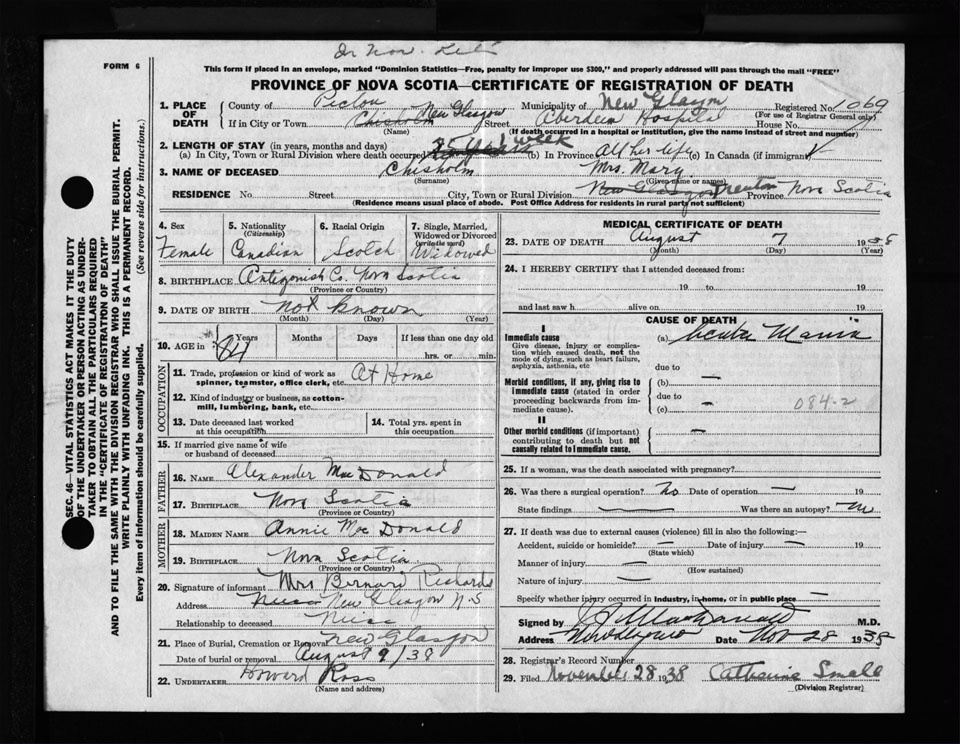 Dr Nov.
FORM 6
This form if placed in an envelope, marked "Dominion Statistics—Free, penalty for improper use $300," and properly addressed will pass through the mail "FREE"
PROVINCE OF NOVA SCOTIA—CERTIFICATE OF REGISTRATION OF DEATH
1. PLACE OF DEATH County of Pictou Municipality of New Glasgow Registered No. 1069
(For use of Registrar General only)
If in City or Town Chisholm New Glasgow Street Aberdeen Hospital House No.
(Name) (If death occurred in a hospital or institution, give the name instead of street and number)
2. LENGTH OF STAY (in years, months and days)
(a) In City, Town or Rural Division where death occurred 25 years 1 week (b) In Province All her life (c) In Canada (if immigrant)
3. NAME OF DECEASED Chisholm Mrs. Mary
(Surname) (Given name or names)
RESIDENCE No. Street City, Town or Rural Division New Glasgow Trenton Province Nova Scotia
(Residence means usual place of abode. Post Office Address for residents in rural parts not sufficient)
4. Sex Female
5. Nationality (Citizenship) Canadian
6. Racial Origin Scotch
7. Single, Married, Widowed or Divorced (write the word) Widowed
8. BIRTHPLACE Antigonish Co. Nova Scotia
(Province or Country)
9. DATE OF BIRTH not known
(Month) (Day) (Year)
10. AGE in Years Months Days If less than one day old
84 hrs. or min.
OCCUPATION
11. Trade, profession or kind of work as spinner, teamster, office clerk, etc. At Home
12. Kind of industry or business, as cotton-mill, lumbering, bank, etc.
13. Date deceased last worked at this occupation
14. Total yrs. spent in this occupation
15. If married give name of wife or husband of deceased
FATHER
16. NAME Alexander MacDonald
17. BIRTHPLACE Nova Scotia
(Province or Country)
MOTHER
18. MAIDEN NAME Annie MacDonald
19. BIRTHPLACE Nova Scotia
(Province or Country)
20. Signature of informant Mrs Bernard Richards
Address Niece New Glasgow N.S
Relationship to deceased Niece
21. Place of Burial, Cremation or Removal New Glasgow
Date of burial or removal August 9/38
22. UNDERTAKER Howard Ross
(Name and address)
MEDICAL CERTIFICATE OF DEATH
23. DATE OF DEATH August 7 1938
(Month) (Day) (Year)
24. I HEREBY CERTIFY that I attended deceased from:
19 to 19
and last saw h alive on 19
CAUSE OF DEATH
I
Immediate cause
Give disease, injury or complication which caused death, not the mode of dying, such as heart failure, asphyxia, asthenia, etc
(a) Acute Mania
due to
Morbid conditions, if any, giving rise to immediate cause (stated in order proceeding backwards from immediate cause).
(b) —
due to
(c) — 084-2
II
Other morbid conditions (if important) contributing to death but not causally related to immediate cause.
—
25. If a woman, was the death associated with pregnancy?
26. Was there a surgical operation? No Date of operation — 19
State findings — Was there an autopsy? no
27. If death was due to external causes (violence) fill in also the following:—
Accident, suicide or homicide? — Date of injury — 19
(State which)
Manner of injury —
(How sustained)
Nature of injury —
Specify whether injury occurred in industry, in home, or in public place —
Signed by M.D.
Address New Glasgow Date Nov 28 1938
28. Registrar's Record Number
29. Filed November 28 1938 Catherine Small
(Division Registrar)
SEC. 46—VITAL STATISTICS ACT MAKES IT THE DUTY
OF THE UNDERTAKER OR PERSON ACTING AS UNDER-
TAKER TO OBTAIN ALL THE PARTICULARS REQUIRED
IN THE "CERTIFICATE OF REGISTRATION OF DEATH"
AND TO FILE THE SAME WITH THE DIVISION REGISTRAR WHO SHALL ISSUE THE BURIAL PERMIT.
WRITE PLAINLY WITH UNFADING INK. THIS IS A PERMANENT RECORD.
Every item of information should be carefully supplied. (See reverse side for instructions.)